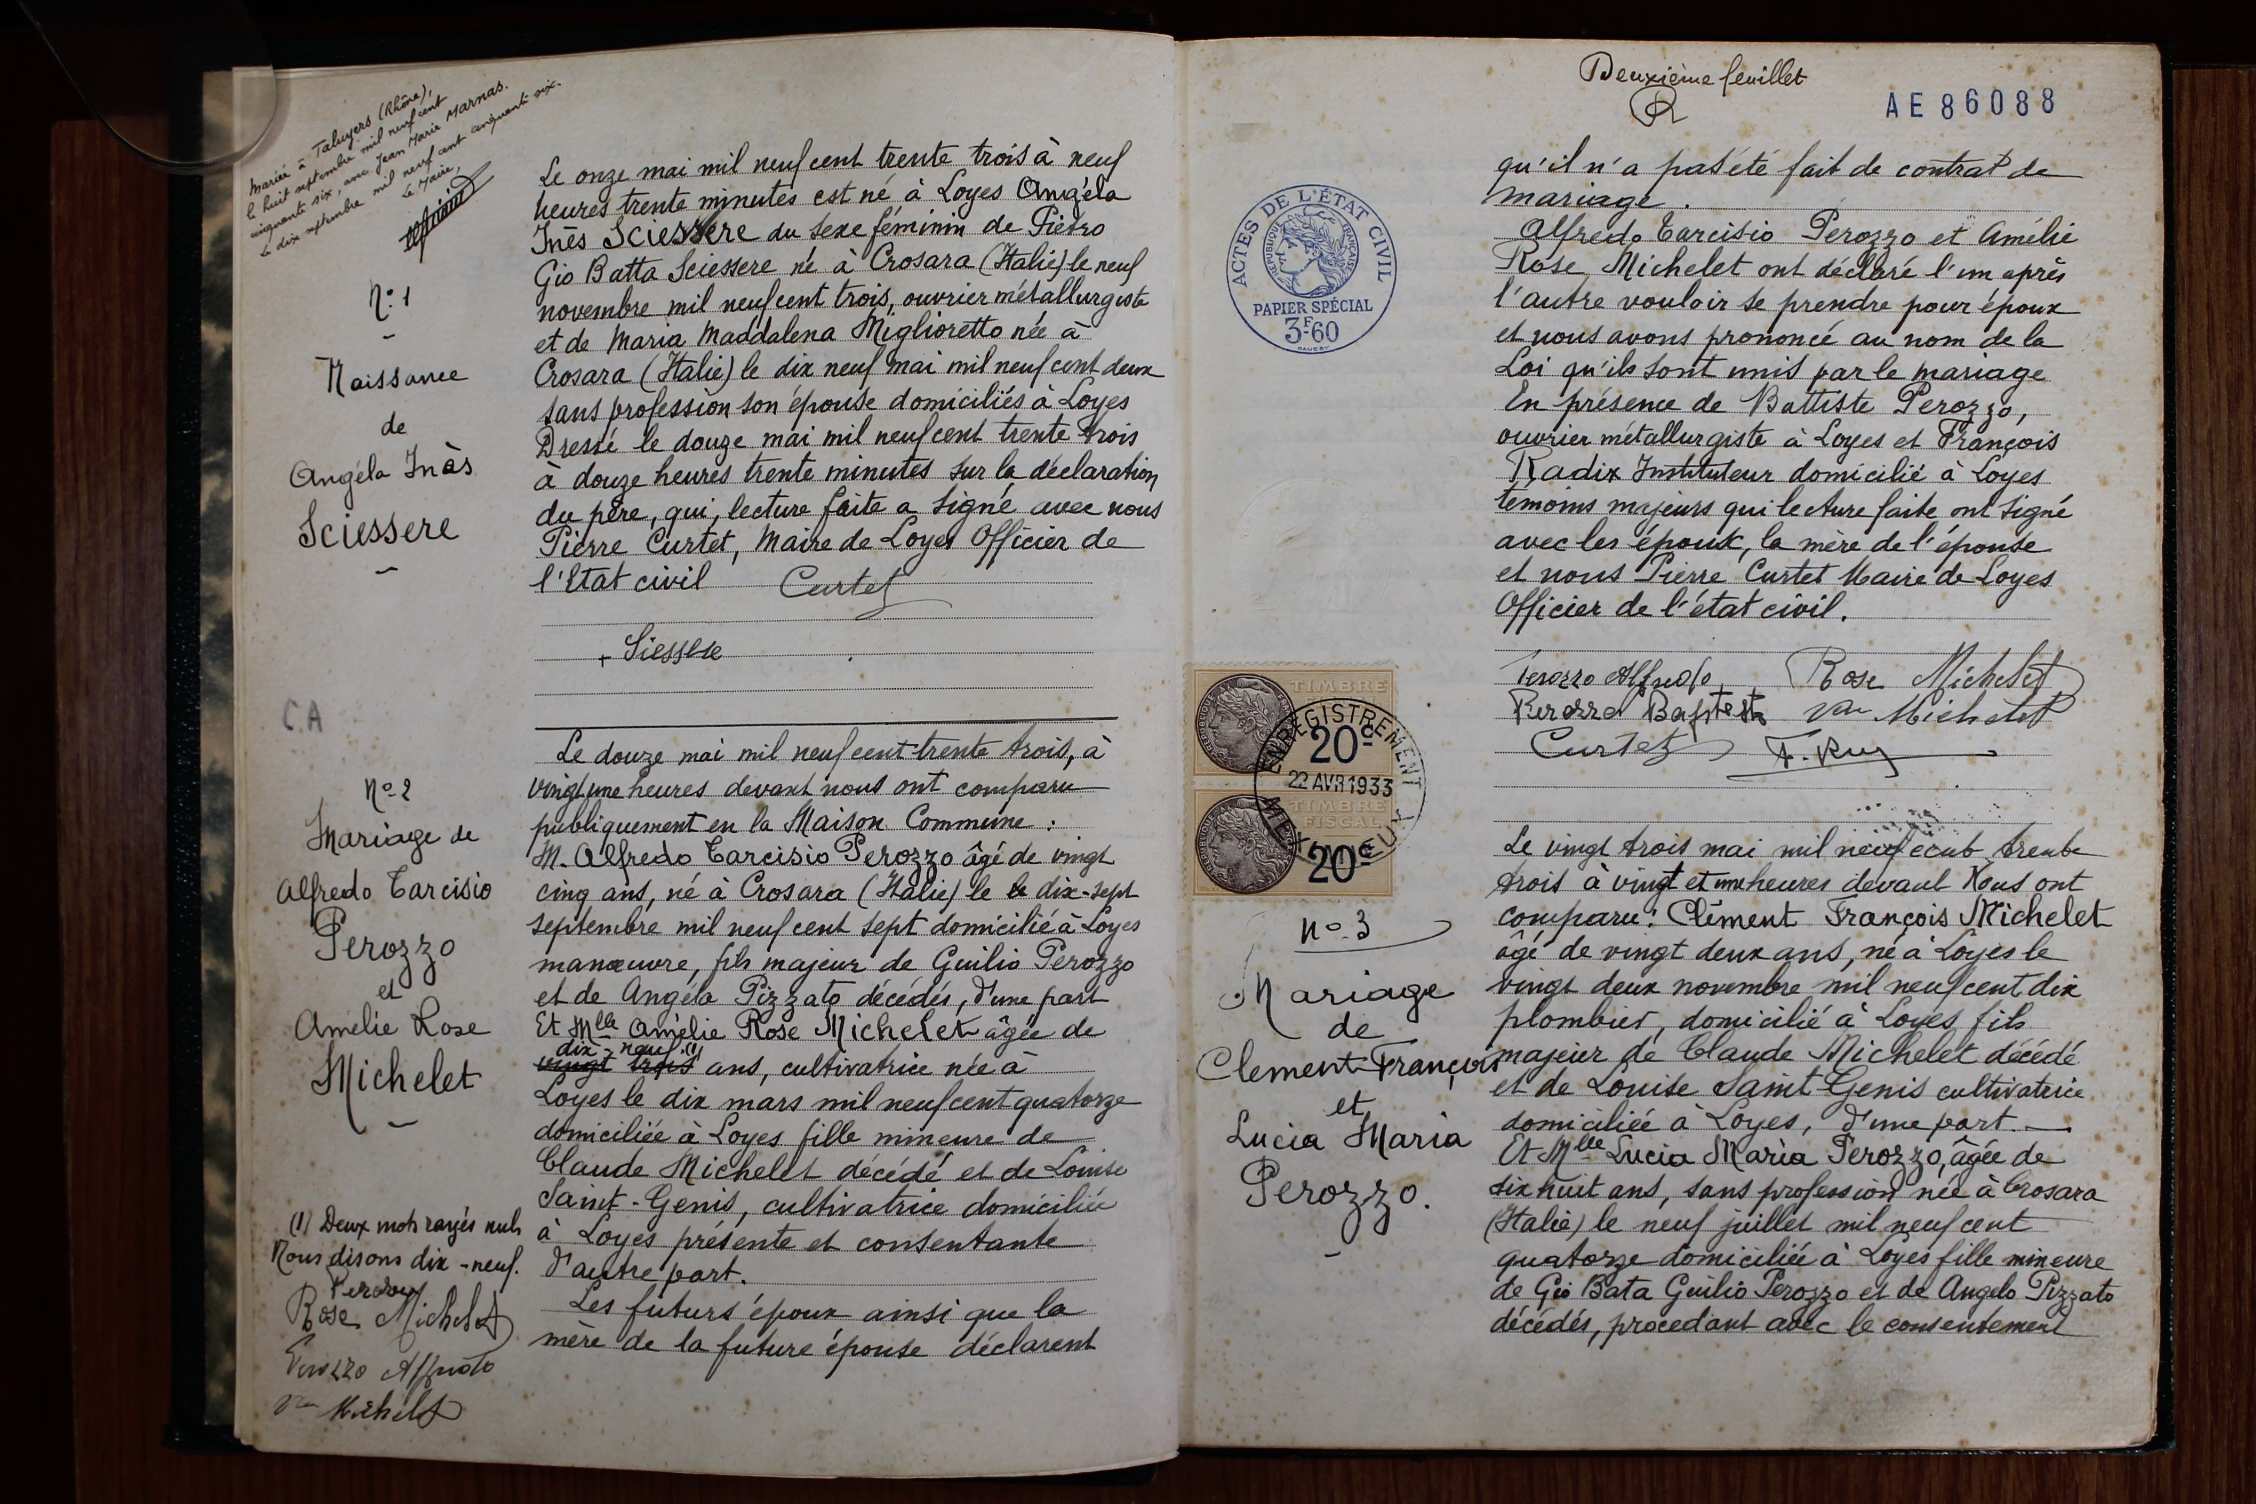 Mariée à Taluyers (Rhône),
le huit septembre mil neuf cent
cinquante six, avec Jean Marie Marnas.
Le dix septembre mil neuf cent cinquante six.
Le Maire,
No 1
Naissance
de
Angéla Inès
Sciessere
Le onze mai mil neuf cent trente trois à neuf
heures trente minutes est né à Loyes Angéla
Inès Sciessere du sexe féminin de Piétro
Gio Batta Sciessere né à Crosara (Italie) le neuf
novembre mil neuf cent trois, ouvrier métallurgiste
et de Maria Maddalena Miglioretto née à
Crosara (Italie) le dix neuf mai mil neuf cent deux
sans profession son épouse domiciliés à Loyes
Dressé le douze mai mil neuf cent trente trois
à douze heures trente minutes sur la déclaration
du père, qui, lecture faite a signé avec nous
Pierre Curtet, Maire de Loyes Officier de
l'Etat civil Curtet
+ Siessere
C.A
No 2
Mariage de
Alfredo Tarcisio
Perozzo
et
Amélie Rose
Michelet
Le douze mai mil neuf cent trente trois, à
vingt une heures devant nous ont comparu
publiquement en la Maison Commune :
M. Alfredo Tarcisio Perozzo âgé de vingt
cinq ans, né à Crosara (Italie) le le dix-sept
septembre mil neuf cent sept domicilié à Loyes
manœuvre, fils majeur de Guilio Perozzo
et de Angéla Pizzato décédés, d'une part
Et Mlle Amélie Rose Michelet âgée de
dix-neuf (1)
vingt trois ans, cultivatrice née à
Loyes le dix mars mil neuf cent quatorze
domiciliée à Loyes fille mineure de
Claude Michelet décédé et de Louise
Saint-Genis, cultivatrice domiciliée
à Loyes présente et consentante
d'autre part.
Les futurs époux ainsi que la
mère de la future épouse déclarent
(1) Deux mots rayés nuls
Nous disons dix-neuf.
Rose Michelet
Perozzo Alfredo
Vve Michelet
Deuxième feuillet
AE 86088
ACTES DE L'ÉTAT CIVIL
RÉPUBLIQUE FRANÇAISE
PAPIER SPÉCIAL
3F60
qu'il n'a pas été fait de contrat de
mariage.
Alfredo Tarcisio Perozzo et Amélie
Rose Michelet ont déclaré l'un après
l'autre vouloir se prendre pour époux
et nous avons prononcé au nom de la
Loi qu'ils sont unis par le mariage
En présence de Battiste Perozzo,
ouvrier métallurgiste à Loyes et François
Radix Instituteur domicilié à Loyes
témoins majeurs qui lecture faite ont signé
avec les époux, la mère de l'épouse
et nous Pierre Curtet Maire de Loyes
Officier de l'état civil.
Perozzo Alfredo Rose Michelet
Perozzo Baptista Vve Michelet
Curtet
TIMBRE
20c
ENREGISTREMENT
22 AVR 1933
MEXIMIEUX
TIMBRE
FISCAL
20c
No 3
Mariage
de
Clement François
et
Lucia Maria
Perozzo.
Le vingt trois mai mil neuf cent trente
trois à vingt et une heures devant Nous ont
comparu : Clément François Michelet
âgé de vingt deux ans, né à Loyes le
vingt deux novembre mil neuf cent dix
plombier, domicilié à Loyes fils
majeur de Claude Michelet décédé
et de Louise Saint Genis cultivatrice
domiciliée à Loyes, d'une part.
Et Mlle Lucia Maria Perozzo, âgée de
dix huit ans, sans profession née à Crosara
(Italie) le neuf juillet mil neuf cent
quatorze domiciliée à Loyes fille mineure
de Gio Bata Guilio Perozzo et de Angelo Pizzato
décédés, procedant avec le consentement